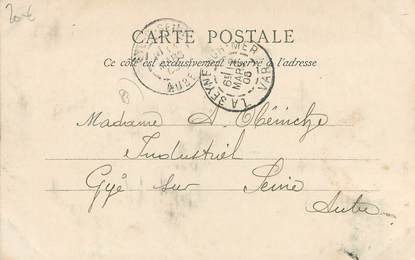 20€
CARTE POSTALE
Ce côté est exclusivement réservé à l'adresse
LA SEYNE-SUR-MER
MARS
05
VAR
AUBE
Madame A.
Industriel
Gyé sur Seine
Aube